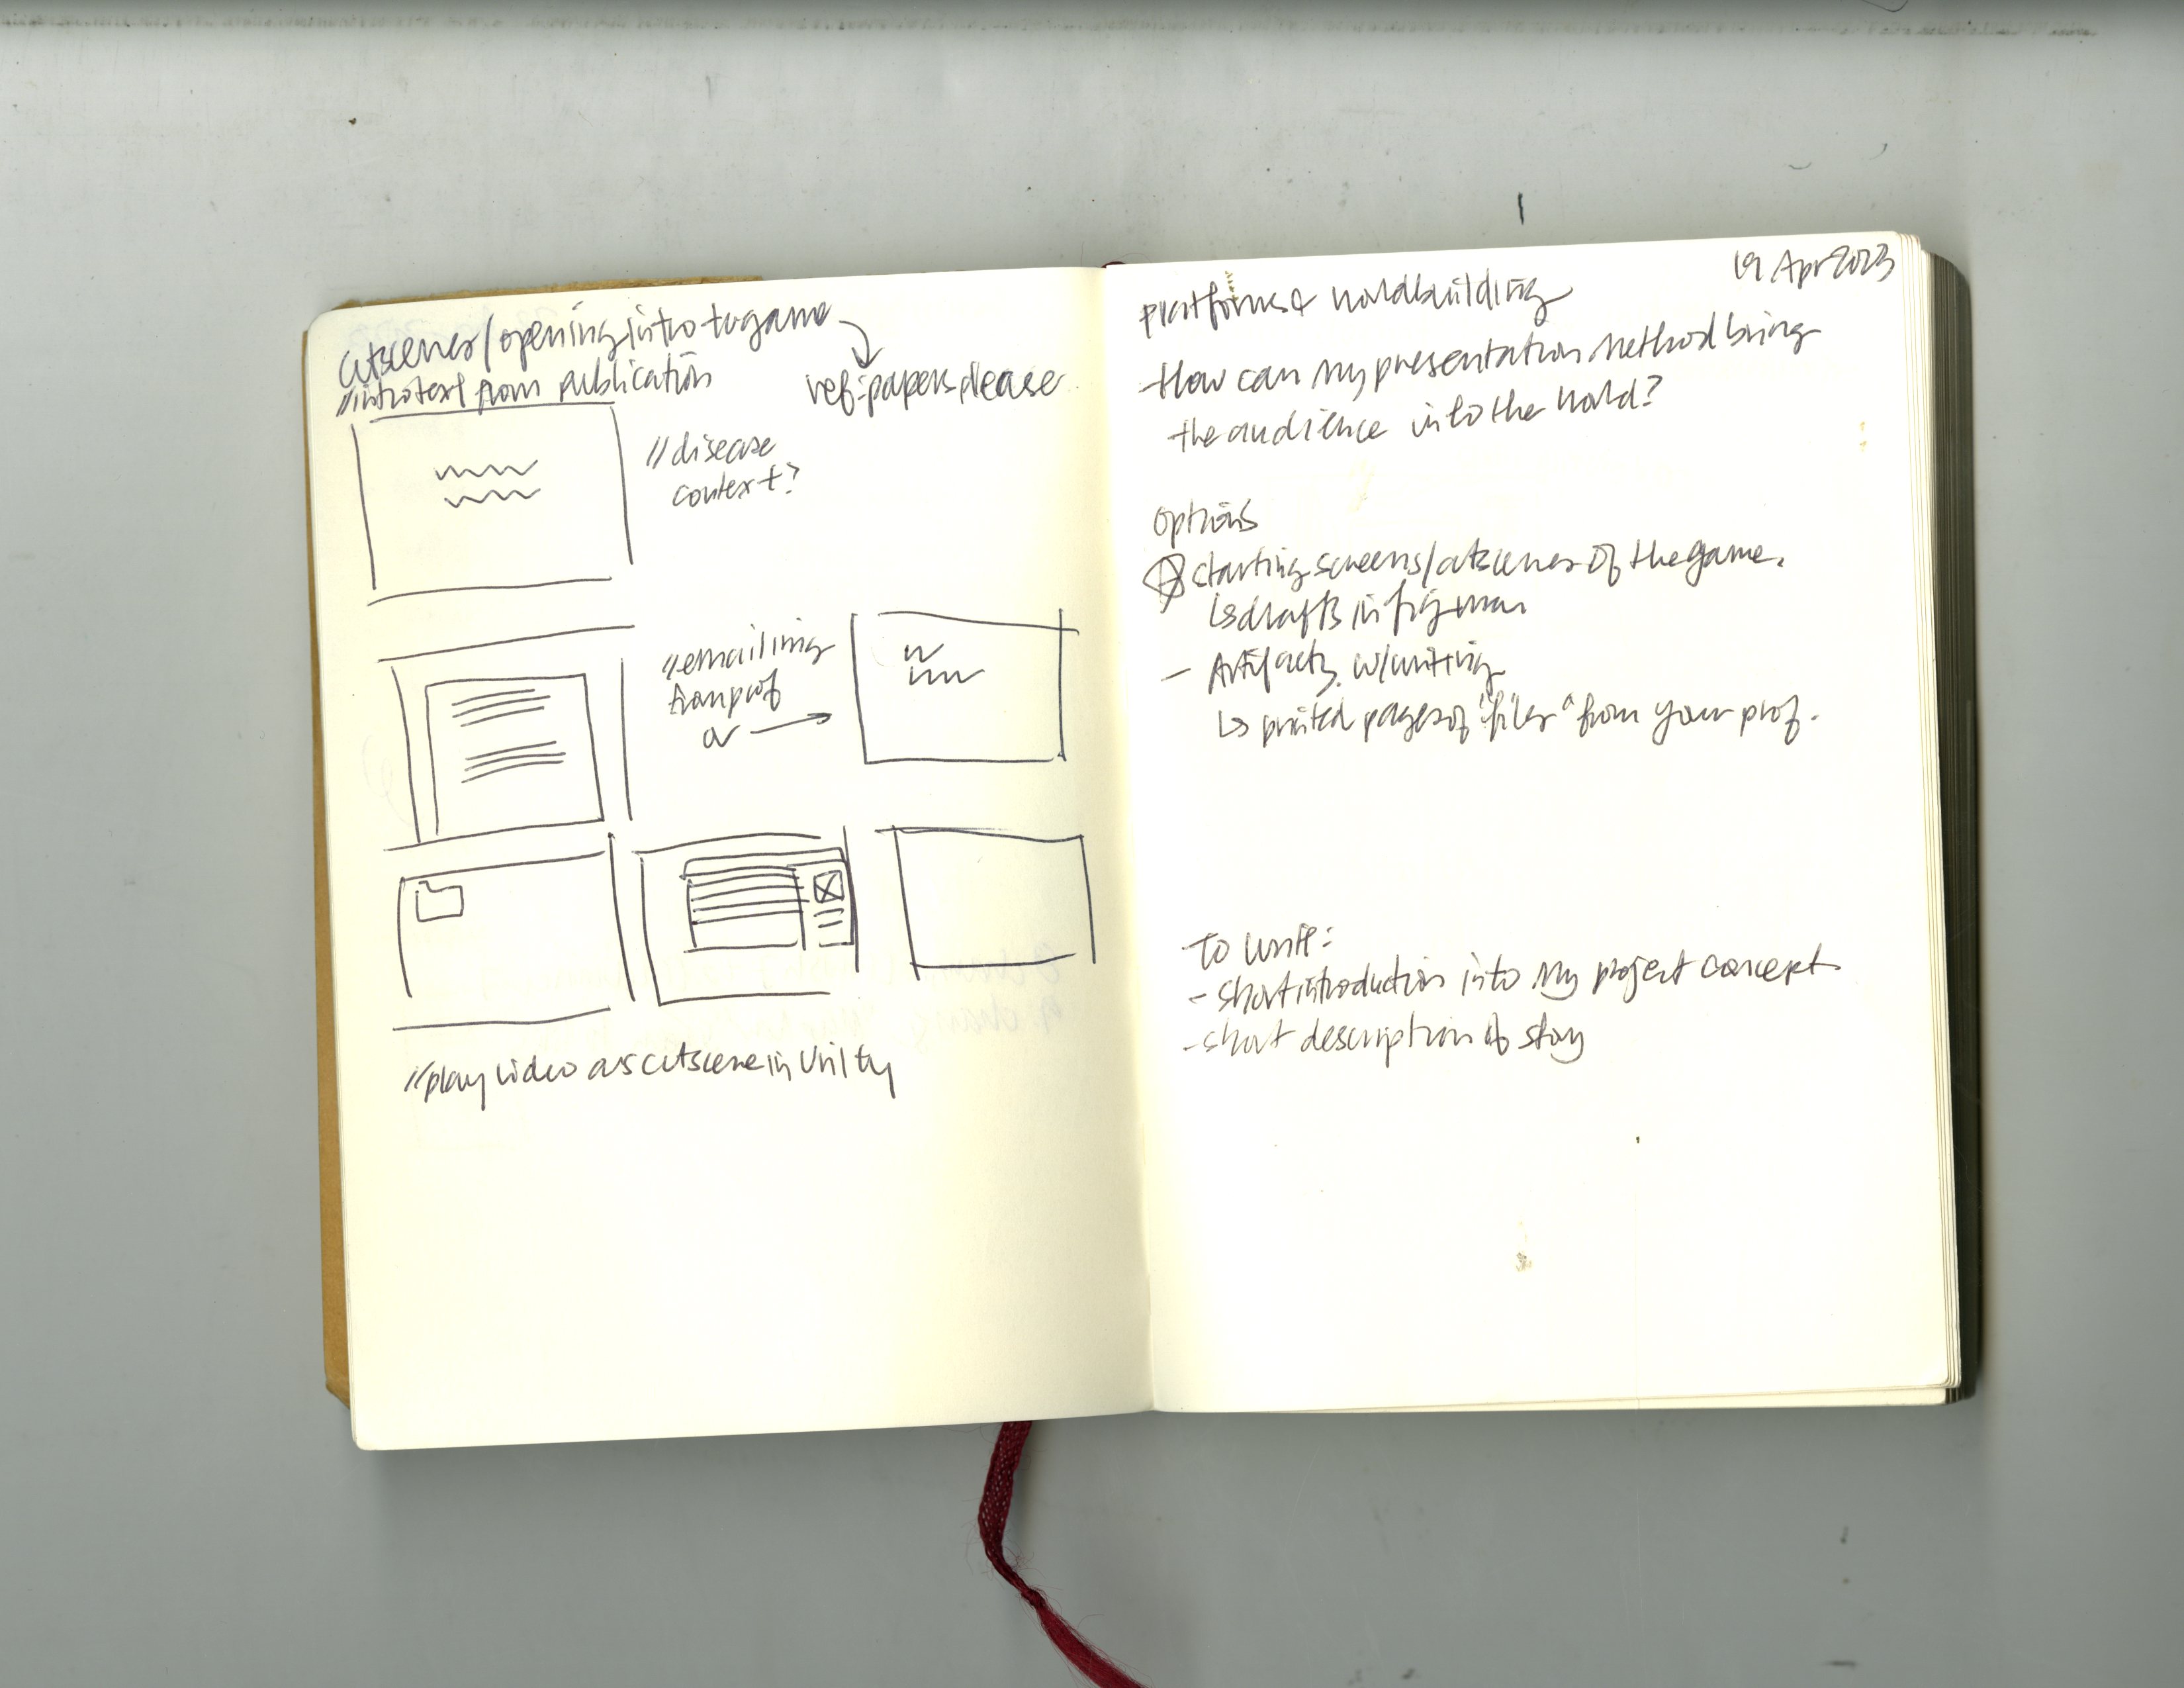 cutscenes/opening intro to game
//introtext from publication
ref: papers please
//disease
context?
//emailing
from prof
or
//play video as cutscene in Unity
19 Apr 2023
platforms & worldbuilding
-How can my presentation method bring
the audience into the world?
options
starting screens/cutscenes of the game.
↳ drafts in figma
- Artifacts w/writing
↳ printed pages of "files" from your prof.
to write:
- short introduction into my project concept
- short description of story